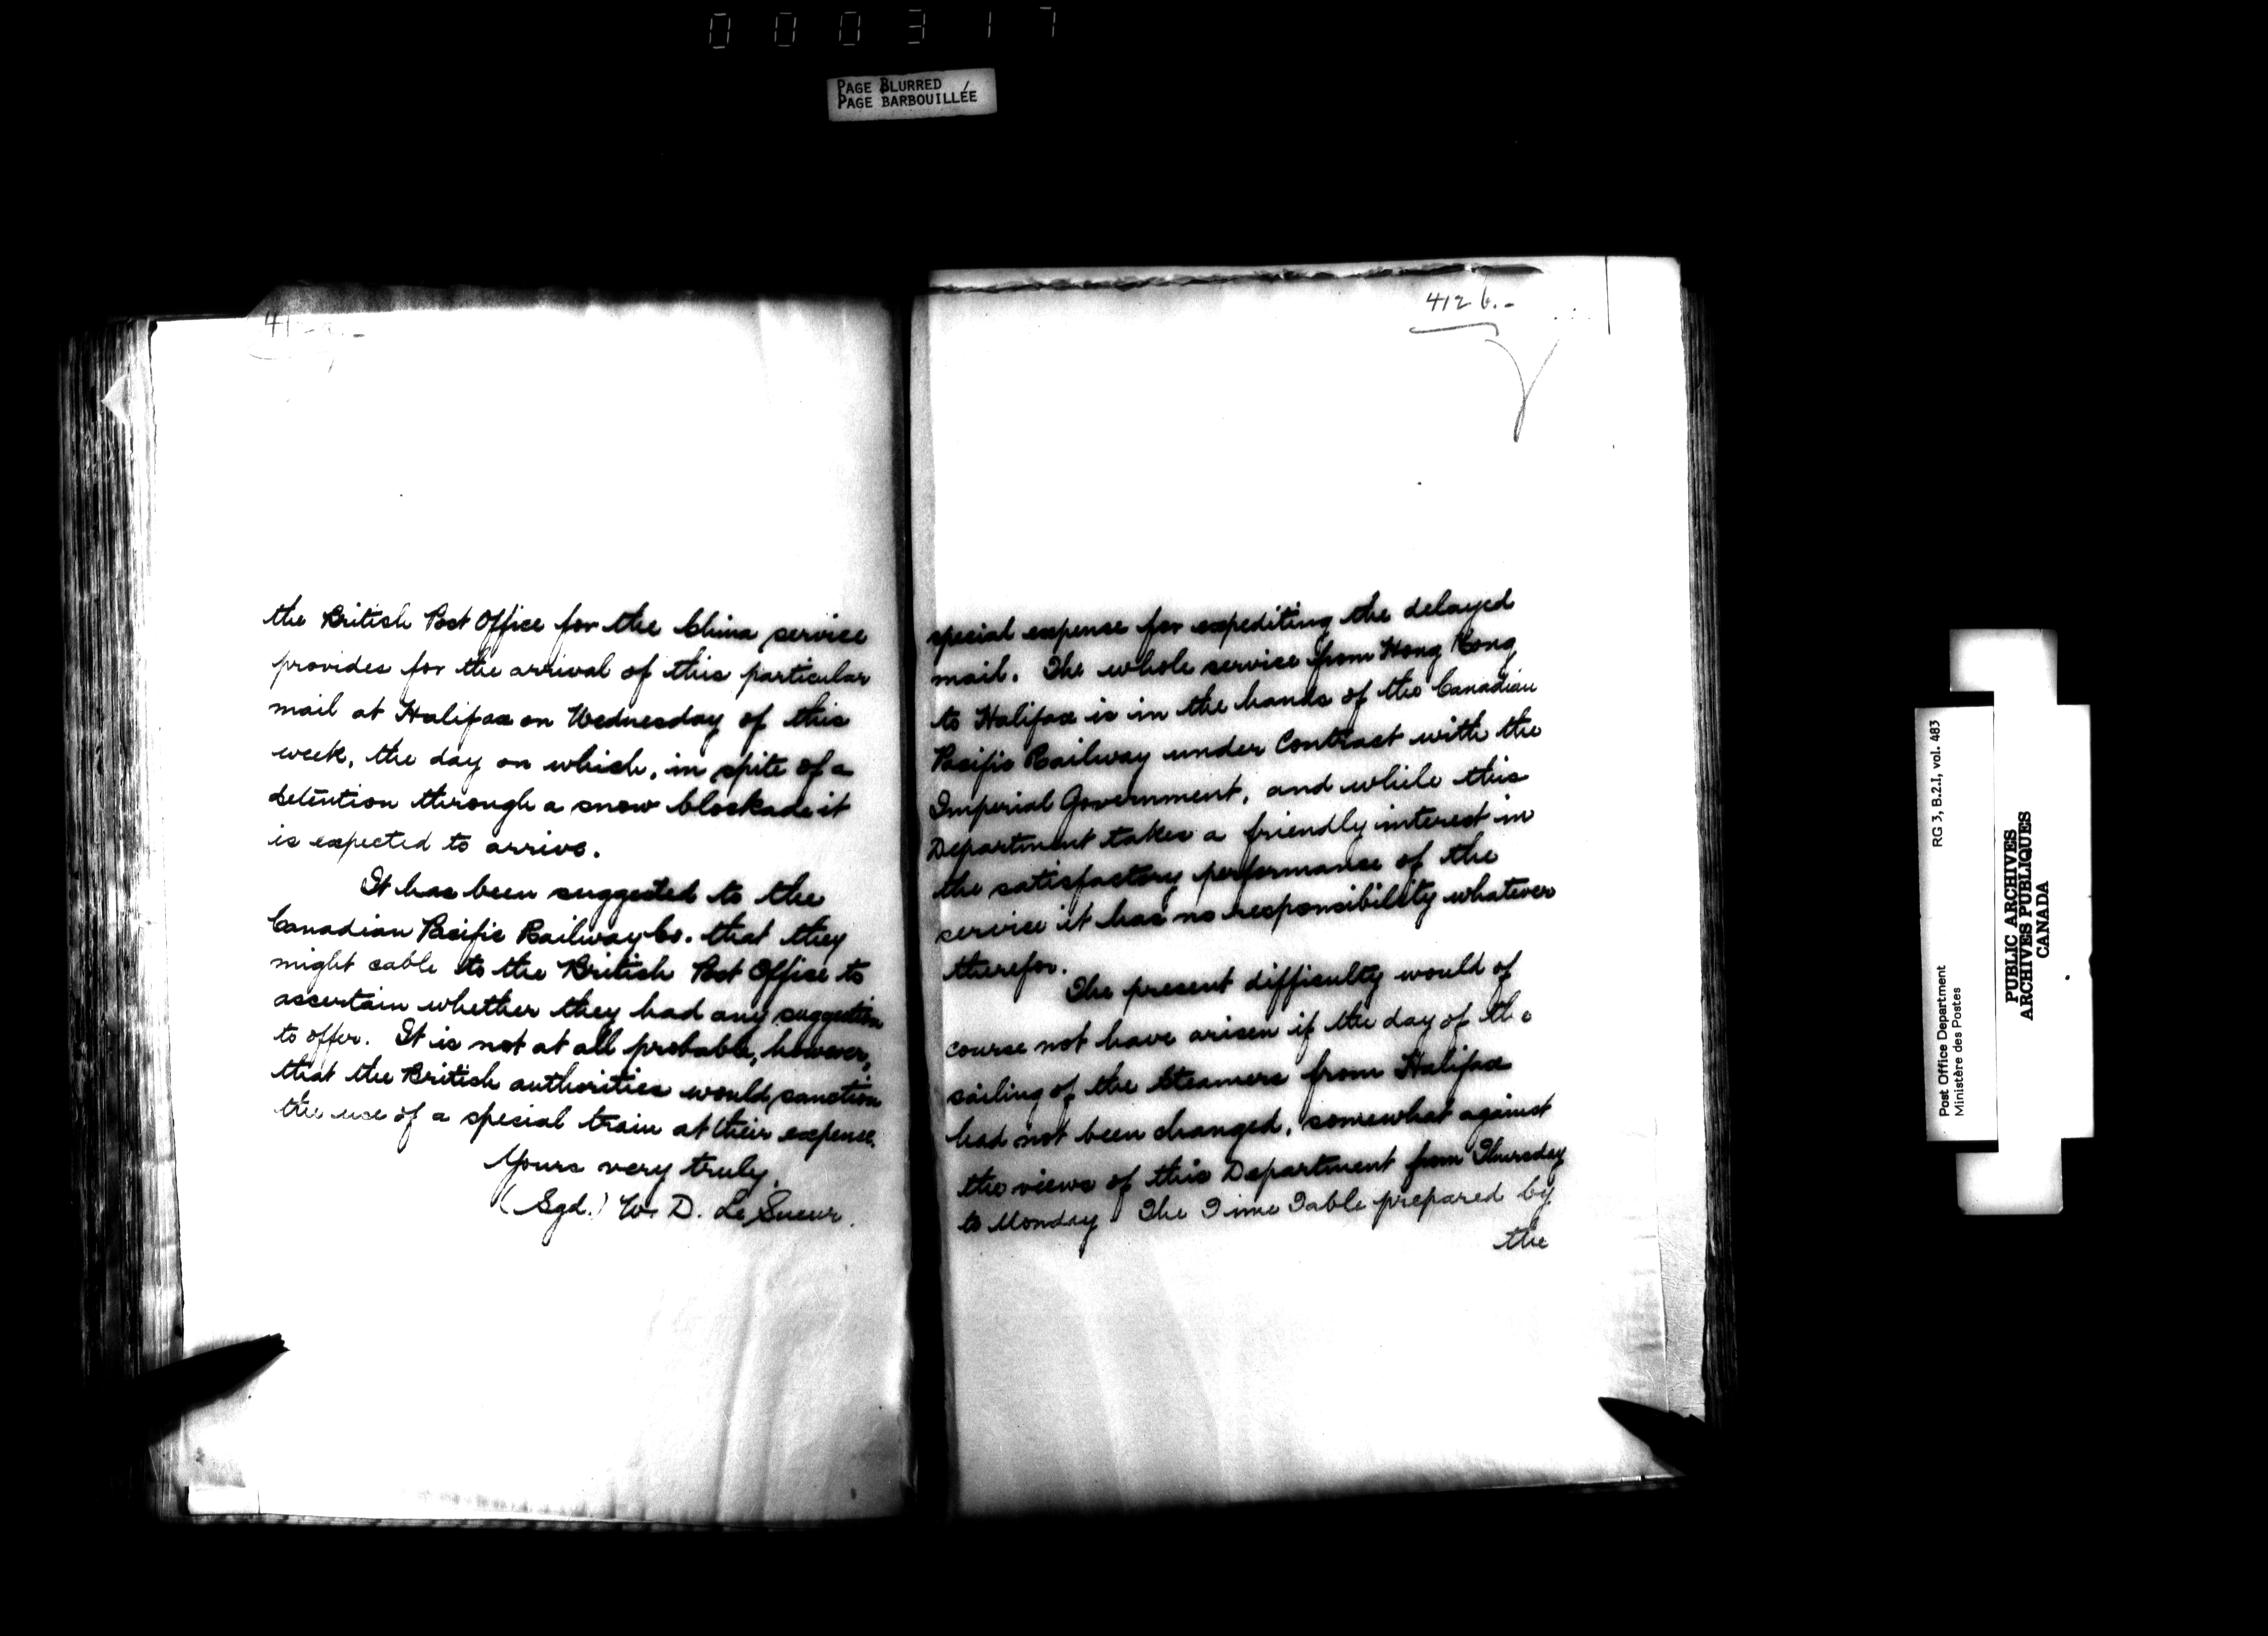 000317
PAGE BLURRED
PAGE BARBOUILLÉE
the British Post Office for the China service
provides for the arrival of this particular
mail at Halifax on Wednesday of this
week, the day on which, in spite of a
detention through a snow blockade it
is expected to arrive.
It has been suggested to the
Canadian Pacific Railway Co. that they
might cable to the British Post Office to
ascertain whether they had any suggestion
to offer. It is not at all probable, however,
that the British authorities would sanction
the use of a special train at their expense.
Yours very truly,
(Sgd.) W. D. Le Sueur.
412 b.-
special expense for expediting the delayed
mail. The whole service from Hong Kong
to Halifax is in the hands of the Canadian
Pacific Railway under Contract with the
Imperial Government, and while this
Department takes a friendly interest in
the satisfactory performance of the
service it has no responsibility whatever
therefor.
The present difficulty would of
course not have arisen if the day of the
sailing of the Steamers from Halifax
had not been changed, somewhat against
the views of this Department from Thursday
to Monday The Time Table prepared by
the
Post Office Department
Ministère des Postes
RG 3, B.2.1, vol. 483
PUBLIC ARCHIVES
ARCHIVES PUBLIQUES
CANADA